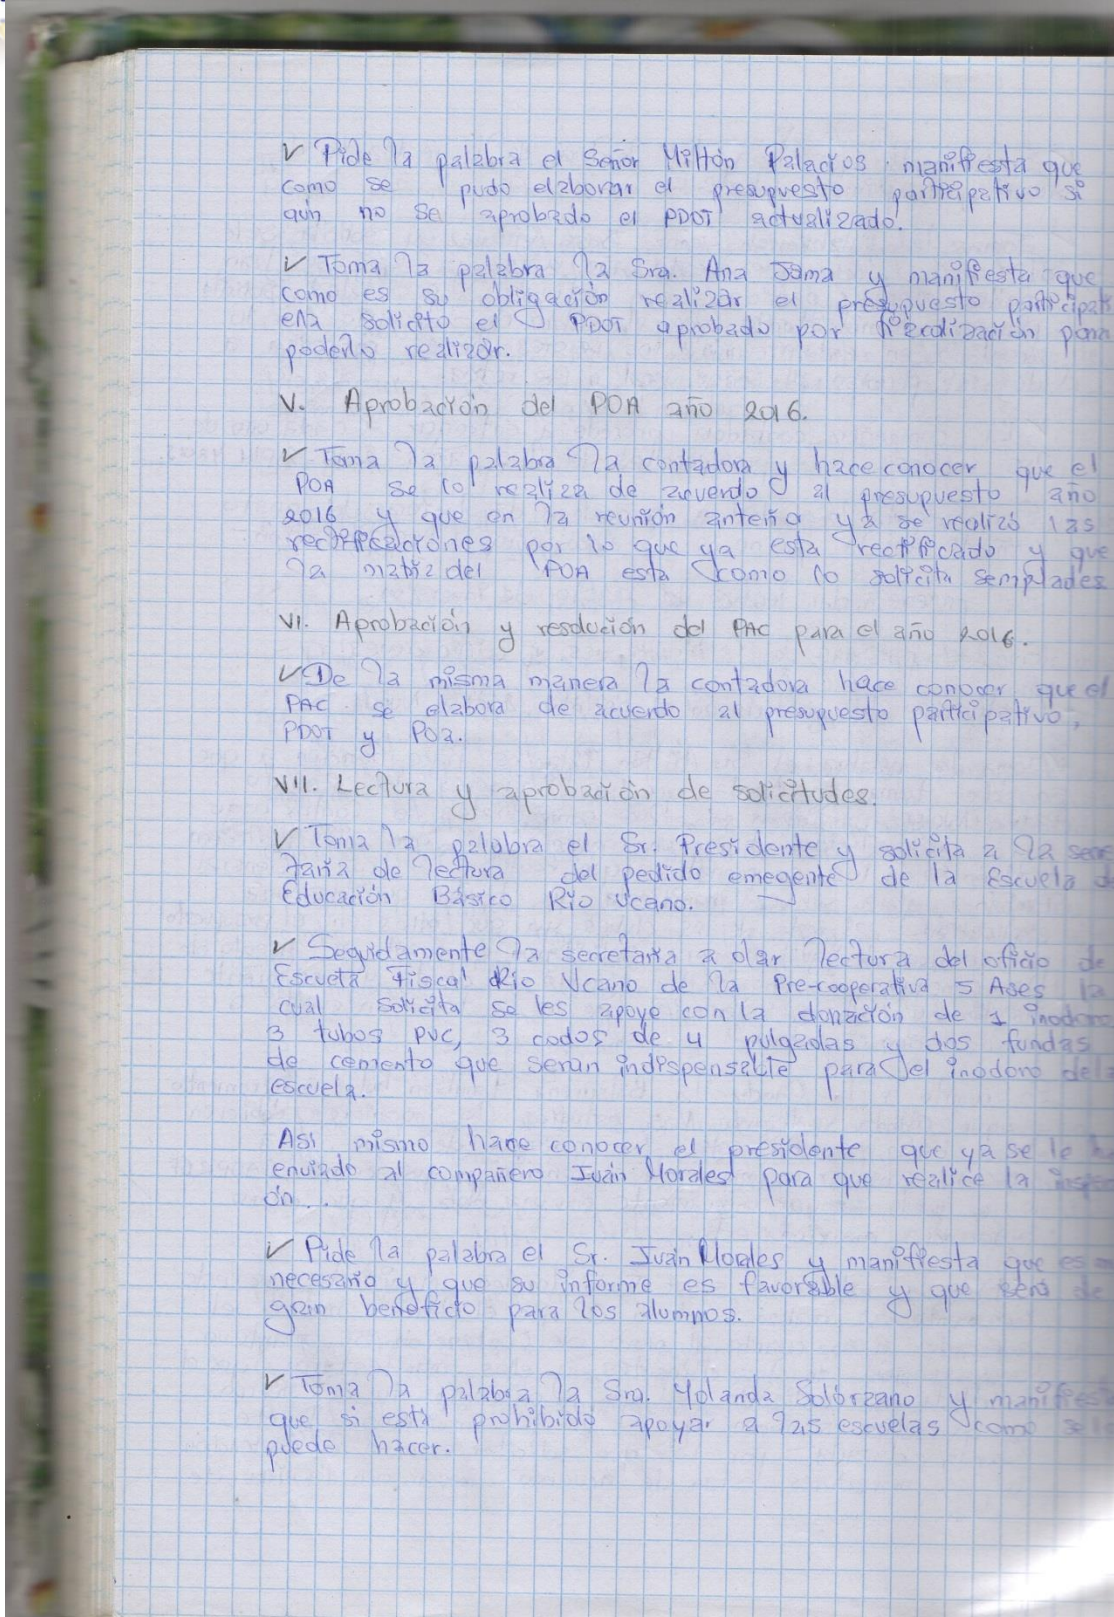 ✓ Pide la palabra el Señor Miltón Palacios manifiesta que
como se pudo elaborar el presupuesto participativo si
aún no se aprobado el PDOT actualizado.
✓ Toma la palabra la Sra. Ana Jama y manifiesta que
como es su obligación realizar el presupuesto participati
ella solicito el PDOT aprobado por fiscalización para
poderlo realizar.
V. Aprobación del POA año 2016.
✓ Toma la palabra la contadora y hace conocer que el
POA se lo realiza de acuerdo al presupuesto año
2016 y que en la reunión anterio ya se realizó las
rectificaciones por lo que ya esta rectificado y que
la matriz del POA esta como lo solicita semplades
VI. Aprobación y resolución del PAC para el año 2016.
✓ De la misma manera la contadora hace conocer que el
PAC se elabora de acuerdo al presupuesto participativo,
PDOT y POa.
VII. Lectura y aprobación de solicitudes.
✓ Toma la palabra el Sr. Presidente y solicita a la secre
taria de lectura del pedido emegente de la Escuela d
Educación Básico Río Ucano.
✓ Seguidamente la secretaria a dar lectura del oficio de
Escuela Fiscal Río Vcano de la Pre-cooperativa 5 Ases la
cual solicita se les apoye con la donación de 1 inodoro
3 tubos PVC, 3 codos de 4 pulgadas y dos fundas
de cemento que serán indispensable para el inodoro de la
escuela.
Asi mismo hace conocer el presidente que ya se le ha
enviado al compañero Iván Morales para que realice la inspec
ón...
✓ Pide la palabra el Sr. Iván Morales y manifiesta que es
necesario y que su informe es favorable y que será de
gran beneficio para los alumnos.
✓ Toma la palabra la Sra. Yolanda Solórzano y manifies
que si está prohibido apoyar a las escuelas como se
puede hacer.